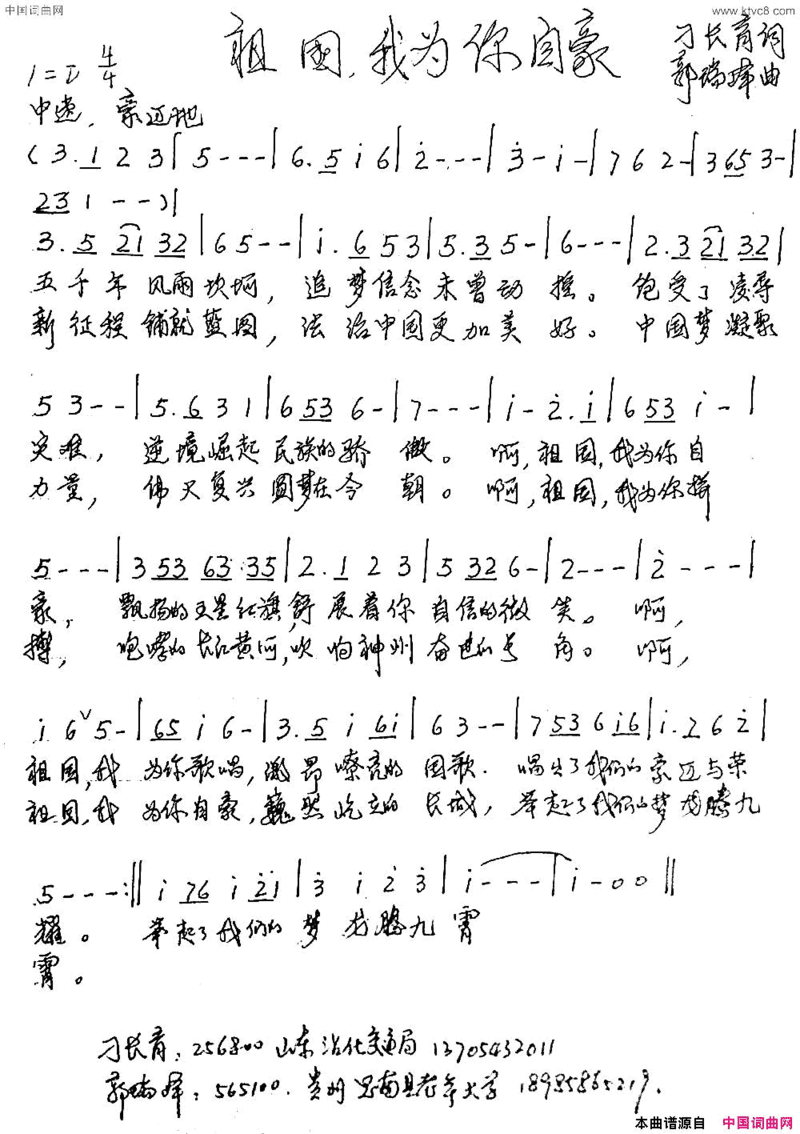 中国词曲网
www.ktvc8.com
祖国,我为你自豪
刁长育词
1= 4/4
郭瑞峰曲
中速,豪迈地
(3.1 2 3|5---|6.5 i 6|2---|3-i-|7 6 2-|3 65 3-|
23 1 --)|
3.5 21 32|6 5--|i.6 5 3|5.3 5-|6---|2.3 21 32|
五千年风雨坎坷,追梦信念未曾动摇。饱受了凌辱
新征程铺就蓝图,法治中国更加美好。中国梦凝聚
5 3--|5.6 3 1|6 53 6-|7---|i-2.i|6 53 i-|
灾难,逆境崛起民族的骄傲。啊,祖国,我为你自
力量,伟大复兴圆梦在今朝。啊,祖国,我为你拼
5---|3 53 63 35|2.1 2 3|5 32 6-|2---|2---|
豪,飘扬的五星红旗,舒展着你自信的微笑。啊,
搏,咆哮的长江黄河,吹响神州奋进的号角。啊,
i 6 5-|65 i 6-|3.5 i 6i|6 3--|7 53 6 i6|i.2 6 2|
祖国,我为你歌唱,激昂嘹亮的国歌.唱出了我们的豪迈与荣
祖国,我为你自豪,巍然屹立的长城,举起了我们的梦龙腾九
5---:‖ i 76 i 2i|3 i 2 3|i---|i-00‖
耀。举起了我们的梦龙腾九霄
霄。
刁长育:256800 山东沾化交通局 13705432011
郭瑞峰:565100.贵州思南县老年大学 18985865219.
本曲谱源自 中国词曲网